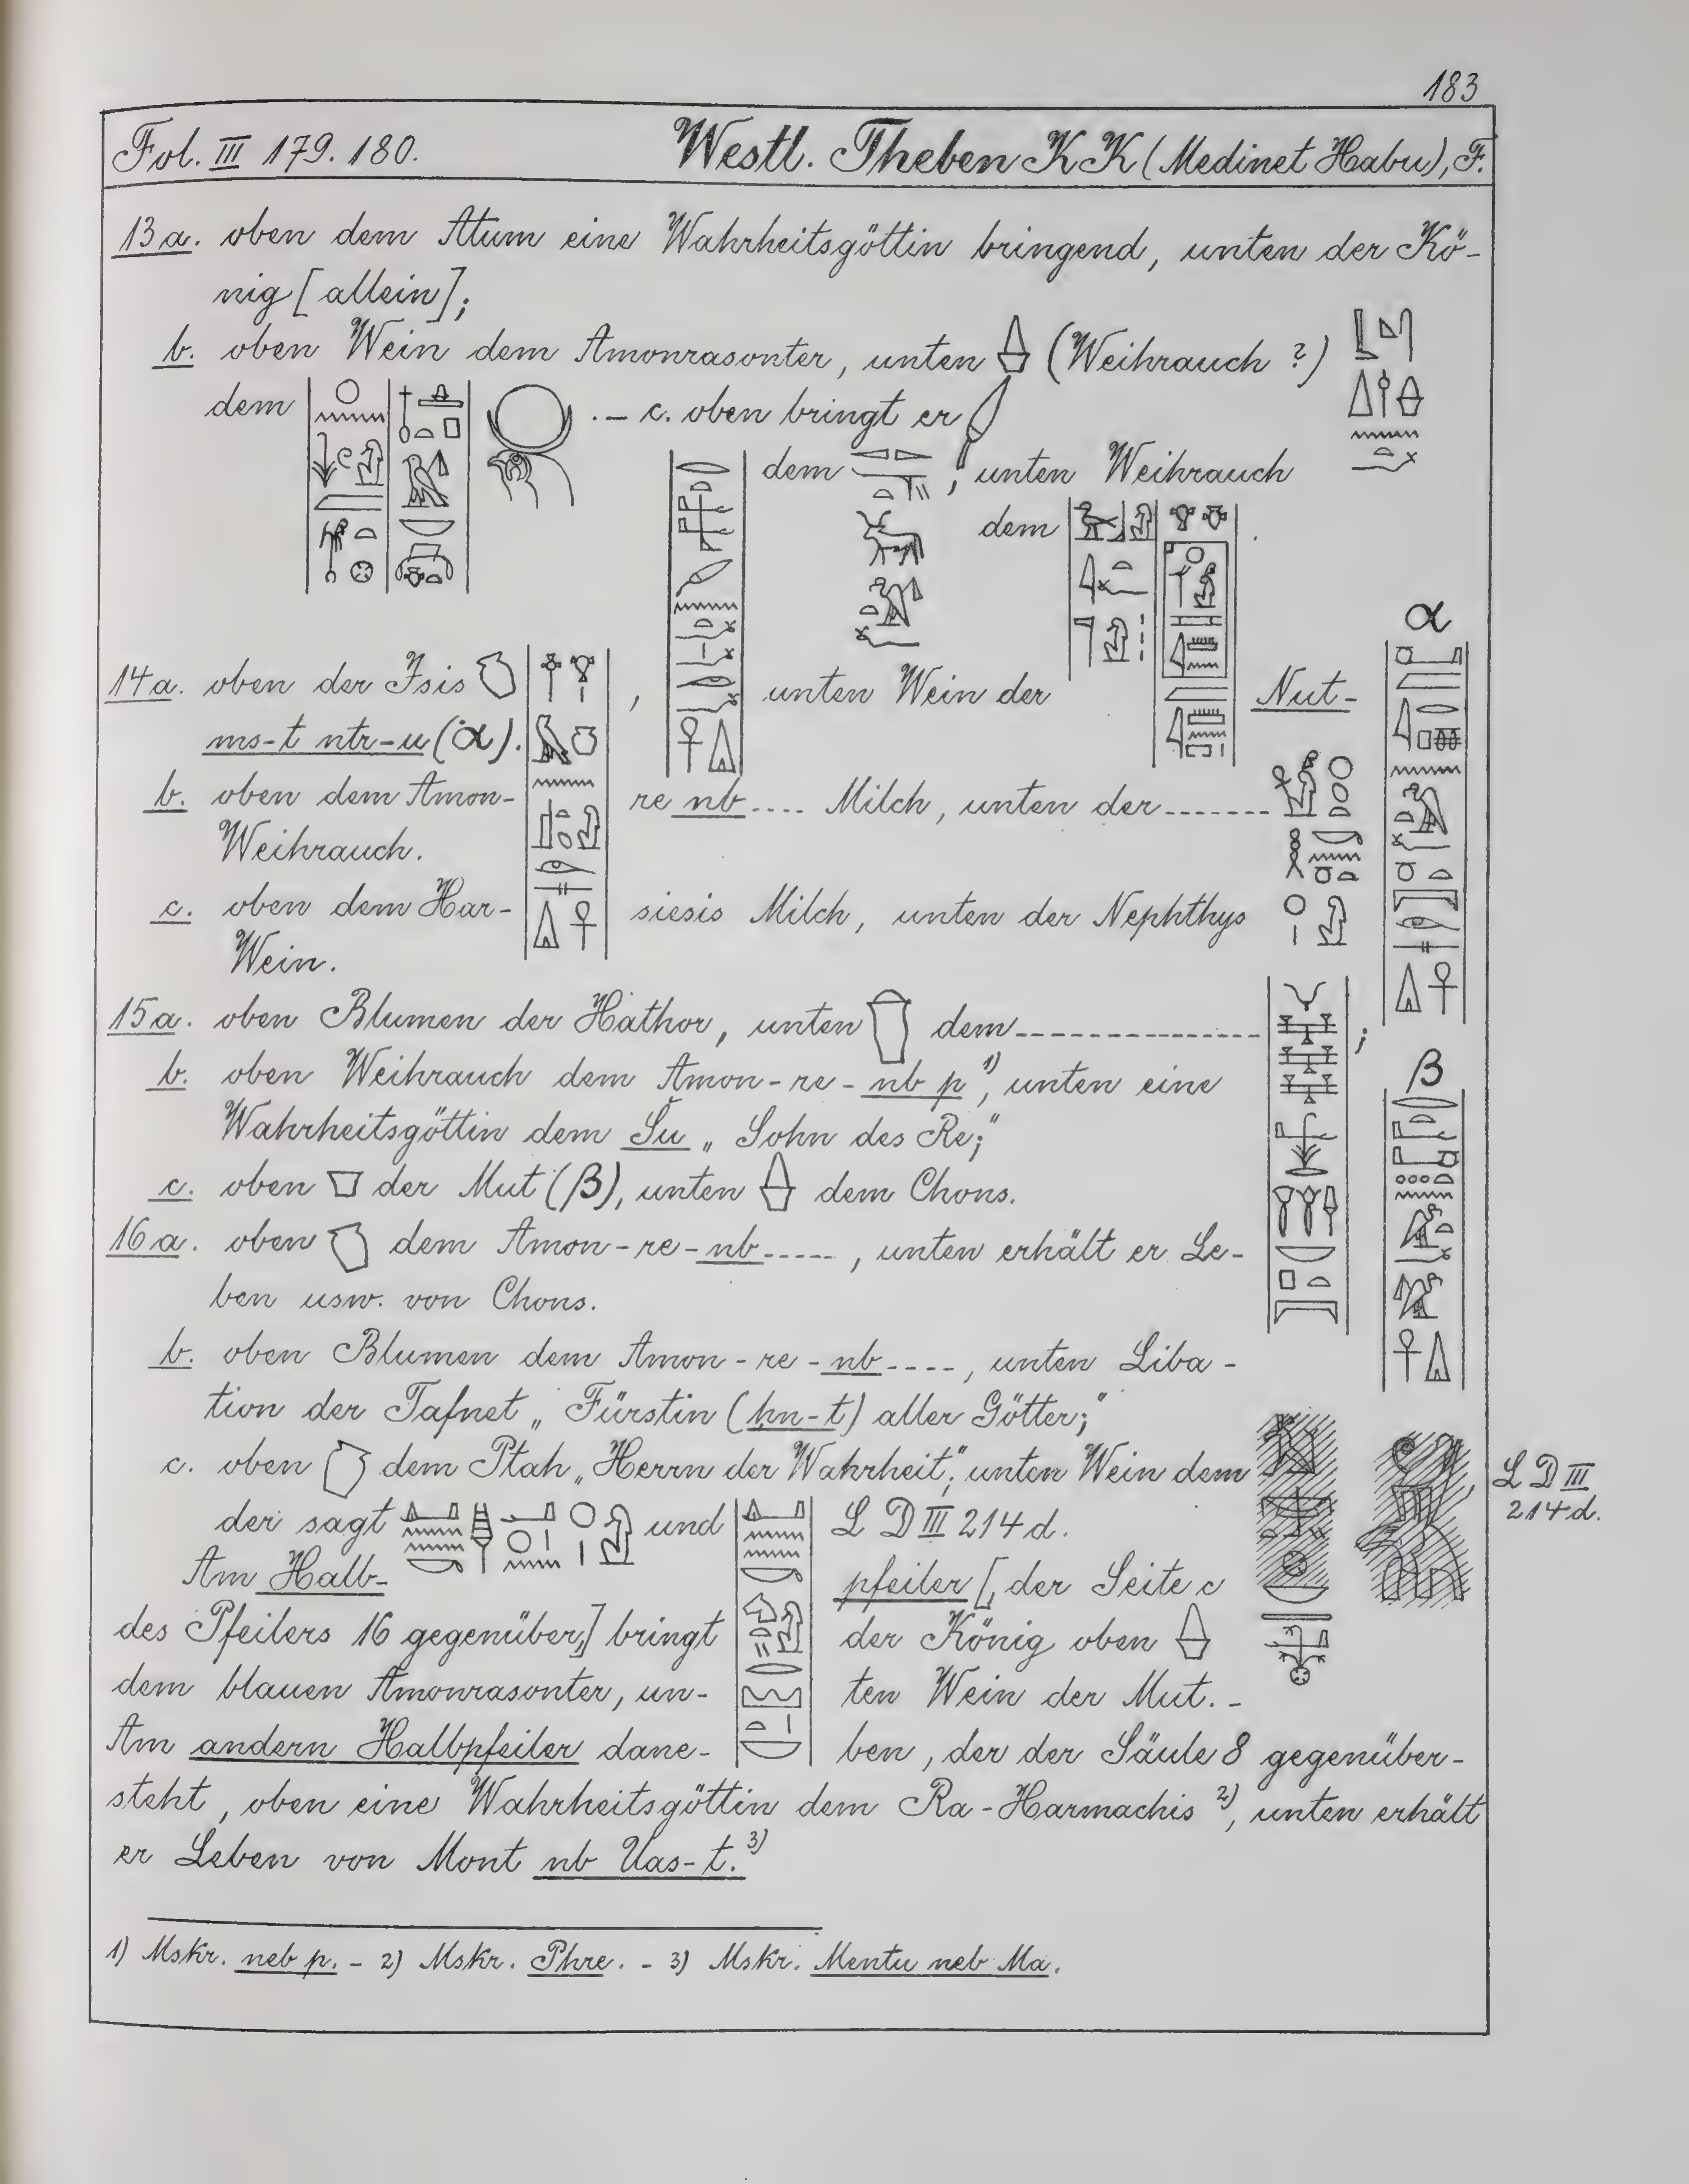 183
Fol. III 179. 180. Westl. Theben KK (Medinet Habu), F.
13a. oben dem Atum eine Wahrheitsgöttin bringend, unten der Kö-
nig [allein];
b. oben Wein dem Amonrasonter, unten (Weihrauch ?)
dem . – c. oben bringt er
dem , unten Weihrauch
dem .
α
14a. oben der Isis , unten Wein der Nut-
ms-t ntr-u (α).
b. oben dem Amon- re nb .... Milch, unten der .......
Weihrauch.
c. oben dem Har- siesis Milch, unten der Nephthys
Wein.
15a. oben Blumen der Hathor, unten dem ............... ;
b. oben Weihrauch dem Amon-re-nb p 1), unten eine
β
Wahrheitsgöttin dem Šu „Sohn des Re;“
c. oben der Mut (β), unten dem Chons.
16a. oben dem Amon-re-nb ....., unten erhält er Le-
ben usw. von Chons.
b. oben Blumen dem Amon-re-nb ...., unten Liba-
tion der Tafnet „Fürstin (ḥn-t) aller Götter;“
c. oben dem Ptah „Herrn der Wahrheit“; unten Wein dem
LD III
214d.
der sagt und LD III 214d.
Am Halb- pfeiler [, der Seite c
des Pfeilers 16 gegenüber,] bringt der König oben
dem blauen Amonrasonter, un- ten Wein der Mut. –
Am andern Halbpfeiler dane- ben, der der Säule 8 gegenüber-
steht, oben eine Wahrheitsgöttin dem Ra-Harmachis 2), unten erhält
er Leben von Mont nb Uas-t. 3)
1) Mskr. neb p. – 2) Mskr. Phre. – 3) Mskr. Mentu neb Ma.